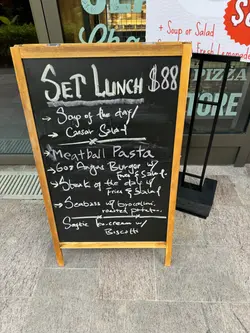 SET LUNCH $88
→ Soup of the day /
→ Caesar Salad
→ Meatball Pasta
Angus Burger w/
Fries & Salad.
→ Steak of the day w/
Fries & Salad
→ Seabass w/ broccolini,
roasted potatoes.
Ice-cream w/
Biscotti
+ Soup or Salad
Fresh Lemonade
PIZZA
ORE